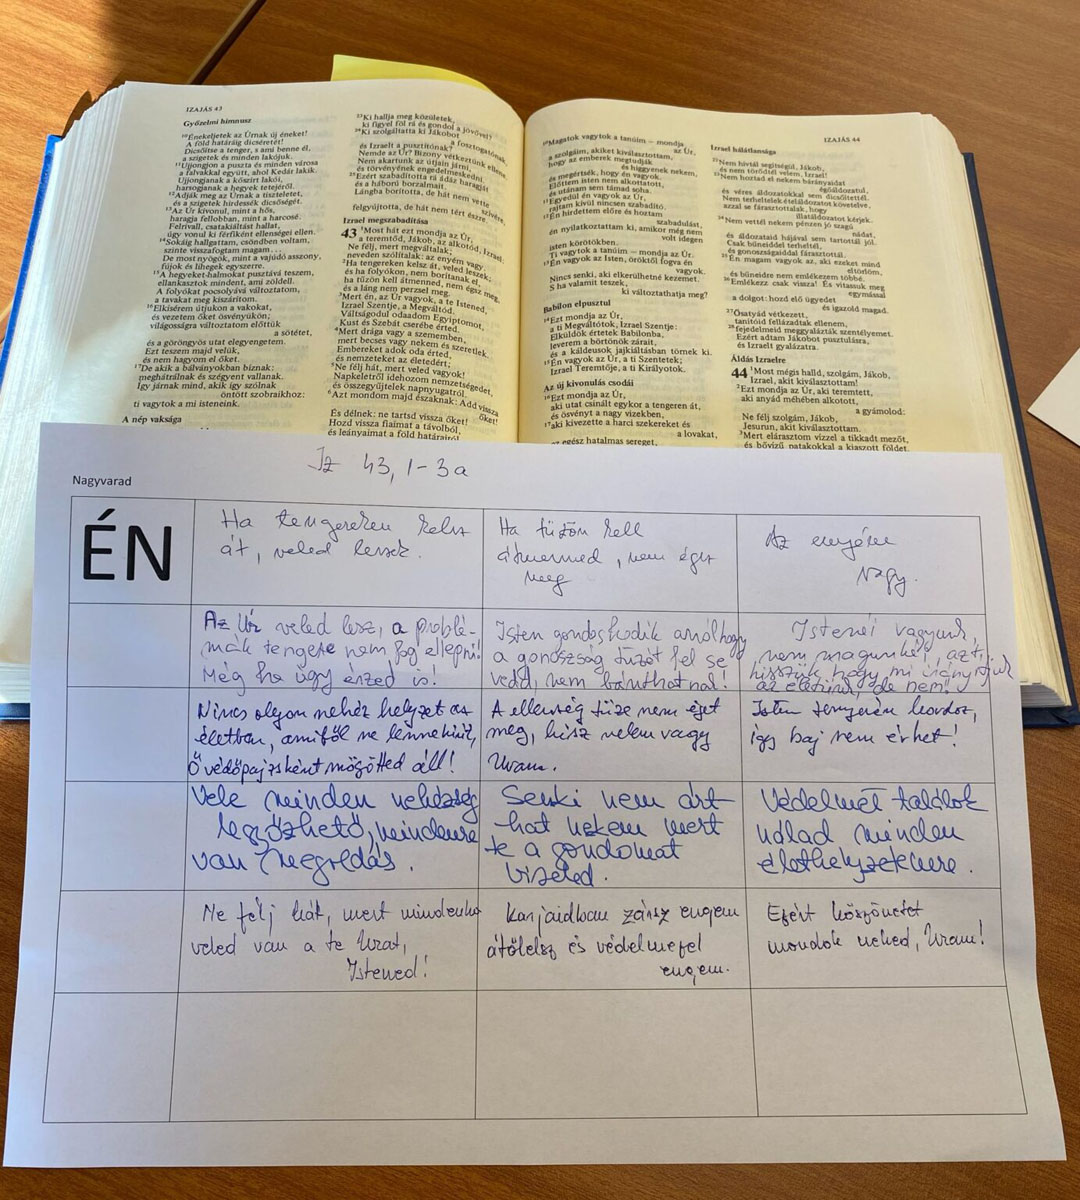 IZAJÁS 43
Győzelmi himnusz
¹⁰Énekeljetek az Úrnak új éneket!
A föld határáig dicséretét!
Dicsőítse a tenger, s ami benne él,
a szigetek és minden lakójuk.
¹¹Ujjongjon a puszta és minden városa
a falvakkal együtt, ahol Kedár lakik.
Ujjongjanak a kőszirt lakói,
harsogjanak a hegyek tetejéről.
¹²Adják meg az Úrnak a tiszteletet,
és a szigetek hirdessék dicsőségét.
¹³Az Úr kivonul, mint a hős,
haragja fellobban, mint a harcosé.
Felrivall, csatakiáltást hallat,
úgy vonul ki férfiként ellenségei ellen.
¹⁴Sokáig hallgattam, csöndben voltam,
szinte visszafogtam magam…
De most nyögök, mint a vajúdó asszony,
fújok és lihegek egyszerre.
¹⁵A hegyeket-halmokat pusztává teszem,
ellankasztok mindent, ami zöldell.
A folyókat pocsolyává változtatom,
a tavakat meg kiszárítom.
¹⁶Elkísérem útjukon a vakokat,
és vezetem őket ösvényükön;
világosságra változtatom előttük
a sötétet,
és a göröngyös utat elegyengetem.
Ezt teszem majd velük,
és nem hagyom el őket.
¹⁷De akik a bálványokban bíznak:
meghátrálnak és szégyent vallanak.
Így járnak mind, akik így szólnak
öntött szobraikhoz:
ti vagytok a mi isteneink.
A nép vaksága
²³Ki hallja meg közületek,
ki figyel föl rá és gondol a jövővel?
²⁴Ki szolgáltatta ki Jákobot
a fosztogatónak,
és Izraelt a pusztítónak?
Nemde az Úr? Bizony vétkeztünk ellene.
Nem akartunk az útjain járni,
és törvényének engedelmeskedni.
²⁵Ezért szabadította rá ádáz haragját
és a háború borzalmait.
Lángba borította, de hát nem vette
szívére,
felgyújtotta, de hát nem tért észre.
Izrael megszabadítása
43 ¹Most hát ezt mondja az Úr,
a teremtőd, Jákob, az alkotód, Izrael:
Ne félj, mert megváltalak;
neveden szólítalak: az enyém vagy.
²Ha tengereken kelsz át, veled leszek;
és ha folyókon, nem borítanak el,
ha tűzön kell átmenned, nem égsz meg,
és a láng nem perzsel meg.
³Mert én, az Úr vagyok, a te Istened,
Izrael Szentje, a Megváltód.
Váltságodul odaadom Egyiptomot,
Kust és Szebát cserébe érted.
⁴Mert drága vagy a szememben,
mert becses vagy nekem és szeretlek.
Embereket adok oda érted,
és nemzeteket az életedért;
⁵Ne félj hát, mert veled vagyok!
Napkeletről idehozom nemzetségedet,
és összegyűjtelek napnyugatról.
⁶Azt mondom majd északnak: Add vissza
őket!
És délnek: ne tartsd vissza őket!
Hozd vissza fiaimat a távolból,
és leányaimat a föld határairól
¹⁰Magatok vagytok a tanúim – mondja
az Úr,
a szolgáim, akiket kiválasztottam,
hogy az emberek megtudják
és higgyenek nekem,
és megértsék, hogy én vagyok.
Előttem isten nem alkottatott,
és utánam sem támad soha.
¹¹Egyedül én vagyok az Úr,
rajtam kívül nincsen szabadító.
¹²Én hirdettem előre és hoztam
szabadulást,
én nyilatkoztattam ki, amikor még nem
volt idegen
isten körötökben.
Ti vagytok a tanúim – mondja az Úr.
¹³Én vagyok az Isten, öröktől fogva én
vagyok.
Nincs senki, aki elkerülhetné kezemet.
S ha valamit teszek,
ki változtathatja meg?
Babilon elpusztul
¹⁴Ezt mondja az Úr,
a ti Megváltótok, Izrael Szentje:
Elküldök értetek Babilonba,
leverem a börtönök zárait,
és a káldeusok jajkiáltásban törnek ki.
¹⁵Én vagyok az Úr, a ti Szentetek;
Izrael Teremtője, a ti Királyotok.
Az új kivonulás csodái
¹⁶Ezt mondja az Úr,
aki utat csinált egykor a tengeren át,
és ösvényt a nagy vizekben,
¹⁷aki kivezette a harci szekereket és
a lovakat,
az egész hatalmas sereget,
IZAJÁS 44
Izrael hálátlansága
²²Nem hívtál segítségül, Jákob,
és nem törődtél velem, Izrael!
²³Nem hoztad el nekem bárányaidat
égőáldozatul,
és véres áldozatokkal sem dicsőítettél.
Nem terheltelek ételáldozatot követelve,
azzal se fárasztottalak, hogy
illatáldozatot kérjek.
²⁴Nem vettél nekem pénzen jó szagú
nádat,
és áldozataid hájával sem tartottál jól.
Csak bűneiddel terheltél,
és gonoszságaiddal fárasztottál.
²⁵Én magam vagyok az, aki ezeket mind
eltörlöm,
és bűneidre nem emlékezem többé.
²⁶Emlékezz csak vissza! És vitassuk meg
egymással
a dolgot: hozd elő ügyedet
és igazold magad.
²⁷Ősatyád vétkezett,
tanítóid fellázadtak ellenem,
²⁸fejedelmeid meggyalázták szentélyemet.
Ezért adtam Jákobot pusztulásra,
és Izraelt gyalázatra.
Áldás Izraelre
44 ¹Most mégis halld, szolgám, Jákob,
Izrael, akit kiválasztottam!
²Ezt mondja az Úr, aki teremtett,
aki anyád méhében alkotott,
a gyámolod:
Ne félj szolgám, Jákob,
Jesurun, akit kiválasztottam.
³Mert elárasztom vízzel a tikkadt mezőt,
és bővizű patakokkal a kiaszott földet.
Iz 43, 1-3a
Nagyvarad
ÉN
Ha tengereken kelsz
át, veled leszek.
Ha tűzön kell
átmenned, nem égsz
meg
Az enyém
vagy.
Az Úr veled lesz, a problé-
mák tengere nem fog ellepni!
Még ha úgy érzed is!
Isten gondoskodik arról, hogy
a gonoszság tüzét fel se
vedd, nem bánthat nal!
Istenéi vagyunk,
nem magunkéi, azt
hisszük, hogy mi irányítjuk
az életünk, de nem!
Nincs olyan nehéz helyzet az
életben, amiből ne lenne kiút,
Ő védőpajzsként mögötted áll!
A ellenség tüze nem éget
meg, hisz velem vagy
Uram.
Isten tenyerén hordoz,
így baj nem érhet!
Vele minden nehézség
legyőzhető, mindenre
van megoldás.
Senki nem árt-
hat nekem mert
te a gondomat
viseled.
Védelmet találok
nálad minden
élethelyzetemre.
Ne félj hát, mert mindenhol
veled van a te Urat,
Istened!
Karjaidban zársz engem
átölelsz és védelmezel
engem.
Ezért köszönetet
mondok neked, Uram!